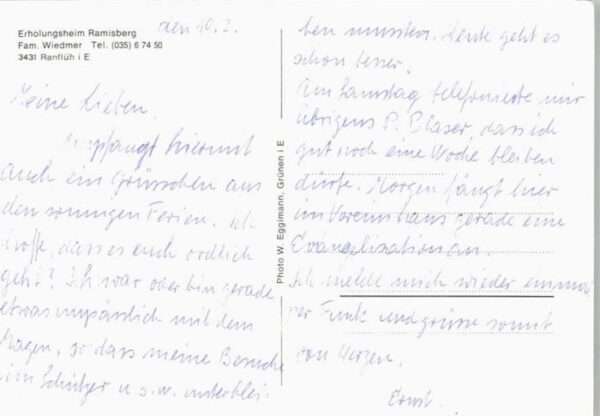 Erholungsheim Ramisberg
Fam. Wiedmer Tel. (035) 6 74 50
3431 Ranflüh i E
den 10. 2.
Meine Lieben.
Empfangt hiermit
auch ein Grüsschen aus
den sonnigen Ferien. Ich
hoffe, dass es euch ordlich
geht? Ich war oder bin gerade
etwas unpässlich mit dem
Magen, so dass meine Besuche
im u s. w. unterblei-
Photo W. Eggimann, Grünen i E
ben mussten. Heute geht es
schon besser.
Am Samstag telefonierte mir
übrigens P. Blaser, dass ich
gut noch eine Woche bleiben
dürfe. Morgen fängt hier
im Vereinshaus gerade eine
Evangelisation an.
Ich melde mich wieder einmal
per Funk und grüsse somit
von Herzen.
Ernst.